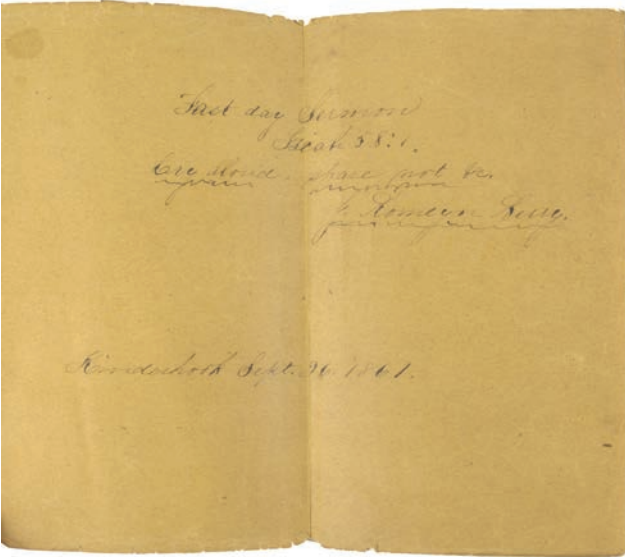 Fast day Sermon
Isiah 58:1.
Cry aloud - spare not &c.
J. Romeyn Berry.
Kinderhook Sept. 26. 1861.